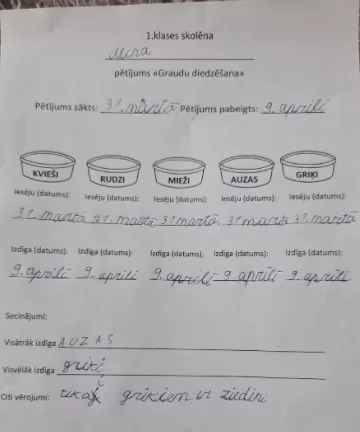 1.klases skolēna
pētījums «Graudu diedzēšana»
Pētījums sākts: 31. martā Pētījums pabeigts: 9. aprīlī
KVIEŠI RUDZI MIEŽI AUZAS GRIĶI
Iesēju (datums): Iesēju (datums): Iesēju (datums): Iesēju (datums): Iesēju (datums):
31. martā 31. martā 31. martā 31. martā 31. martā
Izdīga (datums): Izdīga (datums): Izdīga (datums): Izdīga (datums): Izdīga (datums):
9. aprīlī 9. aprīlī 9. aprīlī 9. aprīlī 9. aprīlī
Secinājumi:
Visātrāk izdīga AUZAS
Visvēlāk izdīga griķi
Citi vērojumi: tikai griķiem ir ziediņi